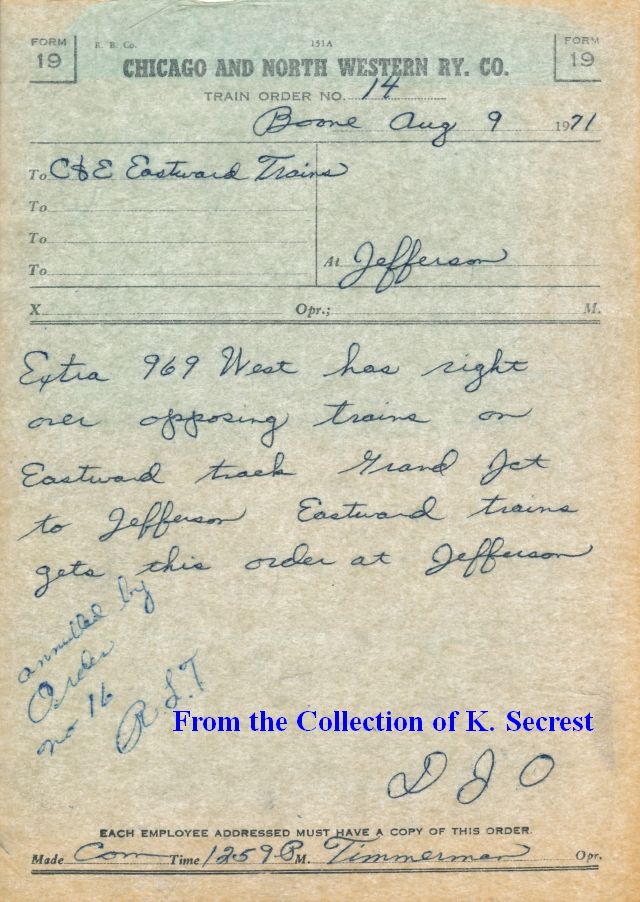 FORM 19
R. B. Co. 151A
FORM 19
CHICAGO AND NORTH WESTERN RY. CO.
TRAIN ORDER NO. 14
Boone Aug 9 1971
To C&E Eastward Trains
To
To
To
At Jefferson
X Opr.; M.
Extra 969 West has right
over opposing trains on
Eastward track Grand Jct
to Jefferson Eastward trains
gets this order at Jefferson
annulled by
Order
no 16
R L T
From the Collection of K. Secrest
D J O
EACH EMPLOYEE ADDRESSED MUST HAVE A COPY OF THIS ORDER.
Made Com Time 1259 P M. Timmerman Opr.